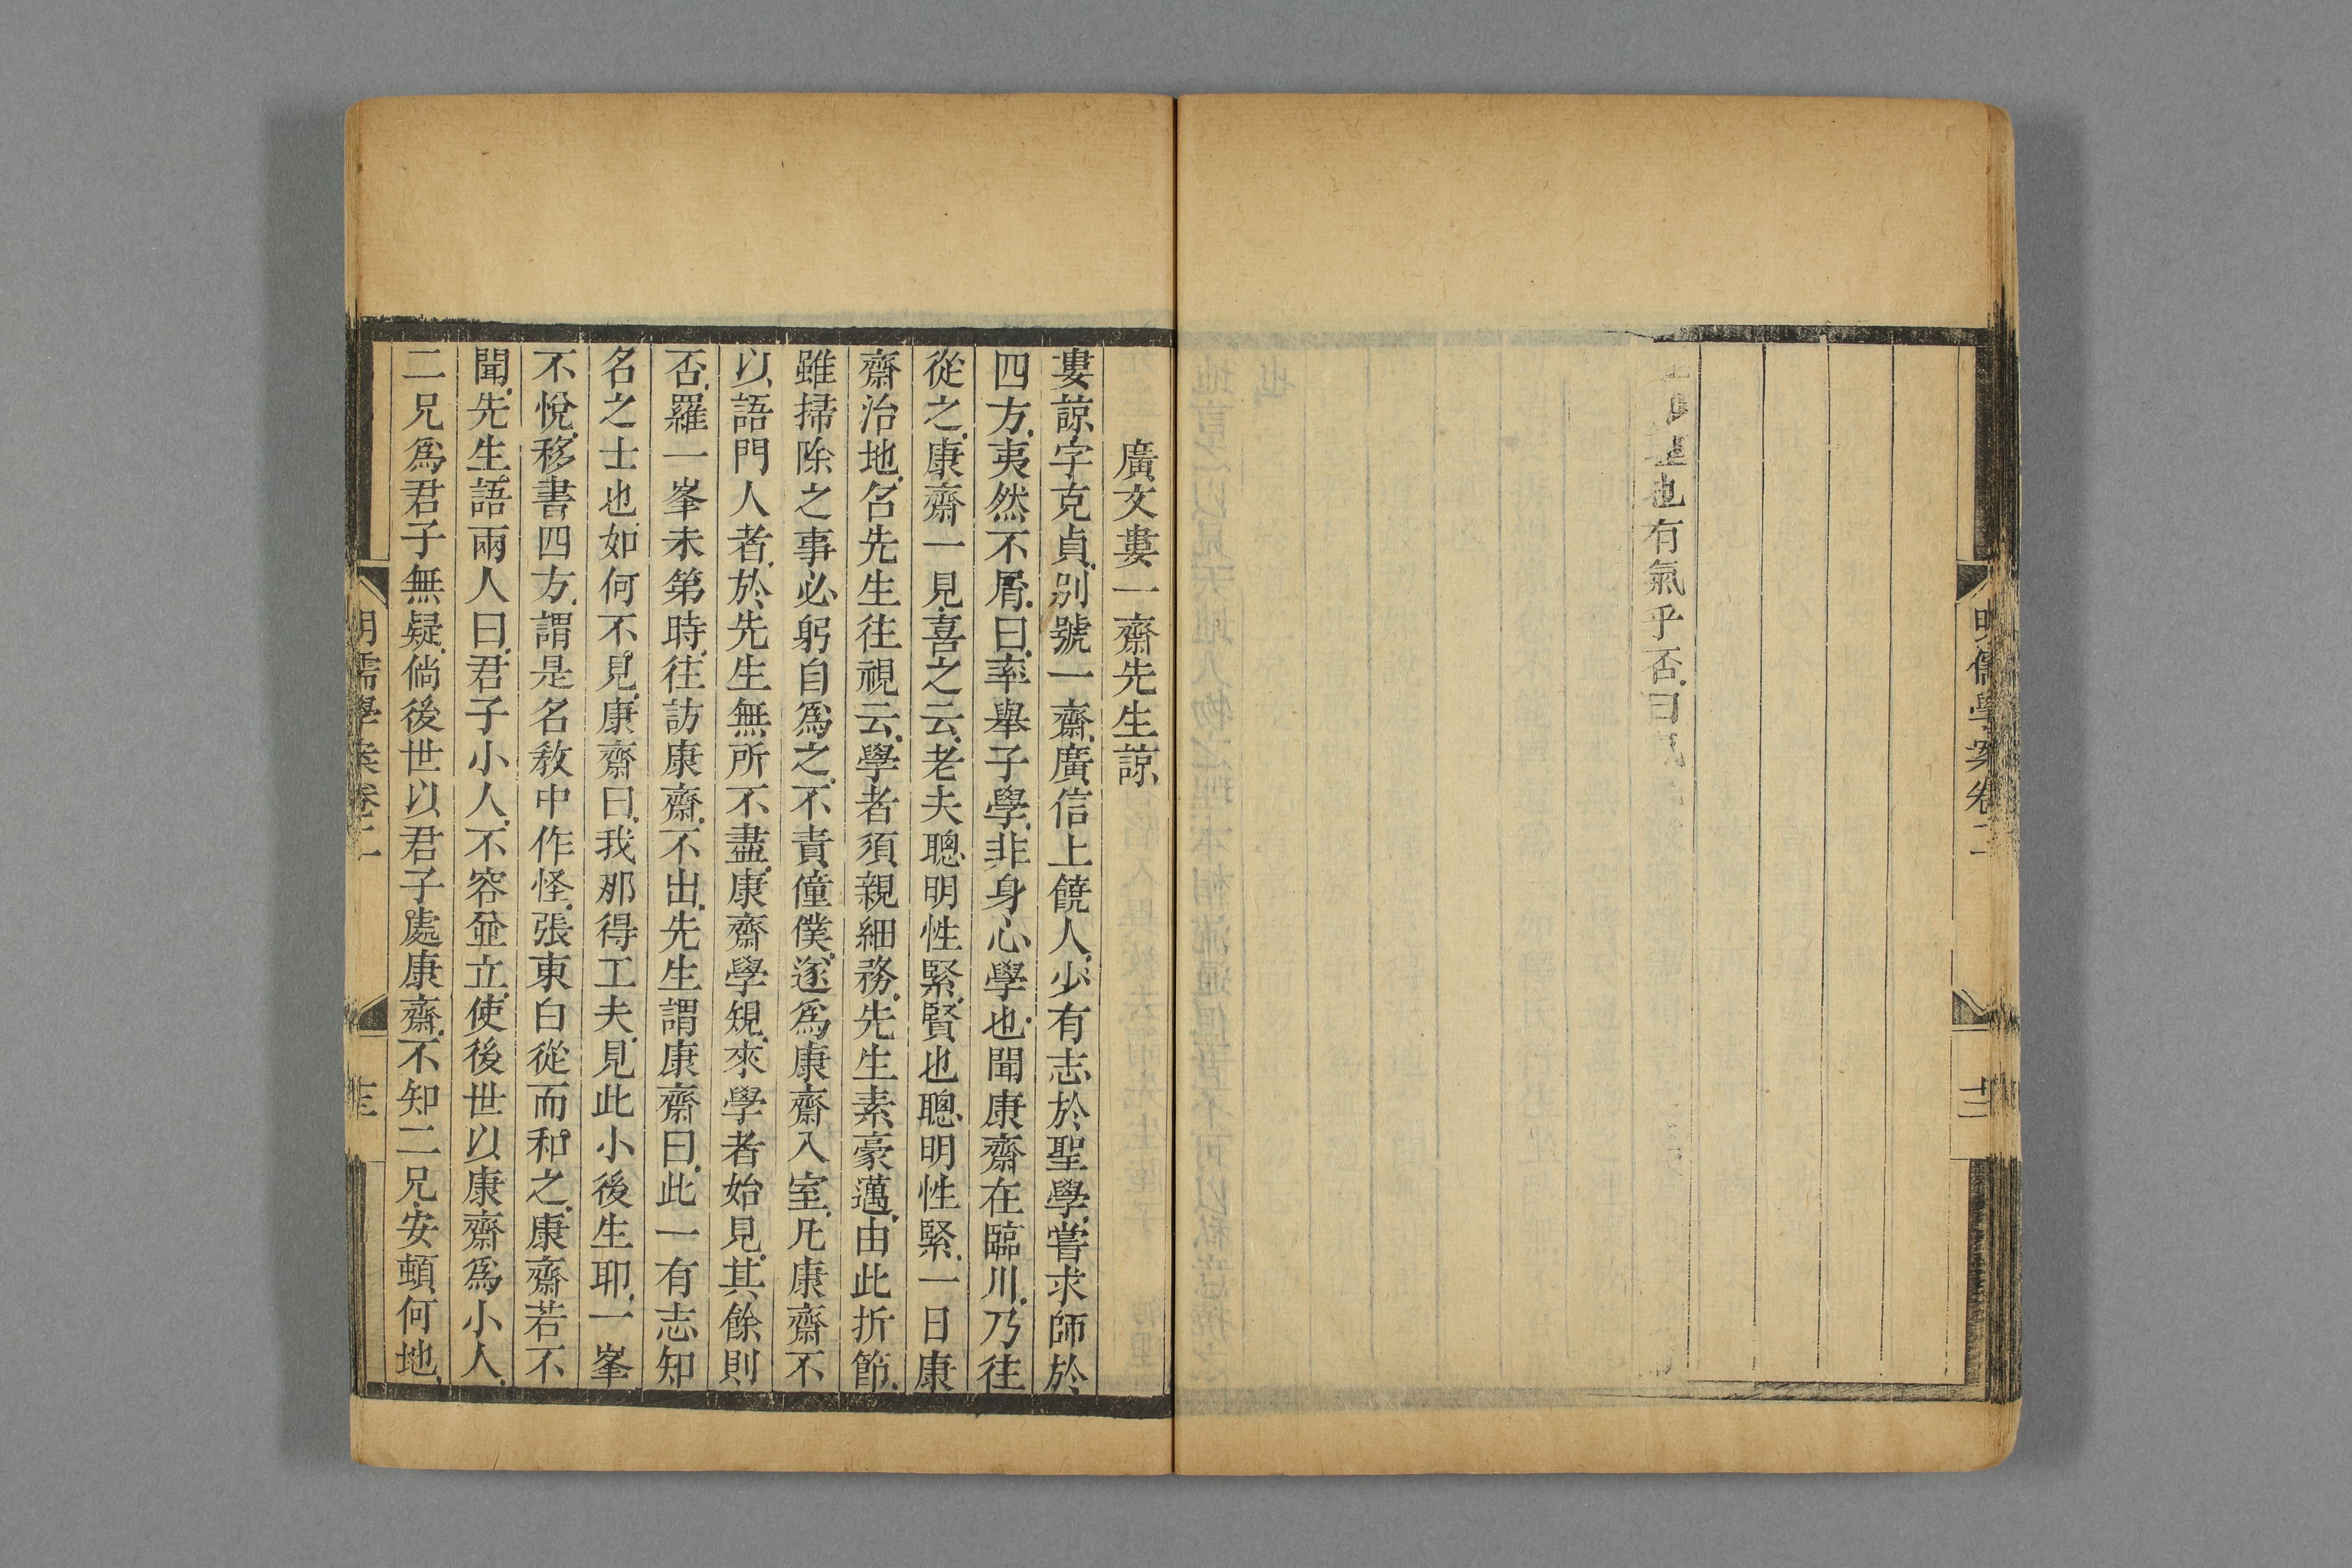 明儒學案卷二
也有氣乎否曰
廣文婁一齋先生諒
婁諒字克貞別號一齋廣信上饒人少有志於聖學嘗求師於
四方夷然不屑曰率舉子學非身心學也聞康齋在臨川乃往
從之康齋一見喜之云老夫聰明性緊賢也聰明性緊一日康
齋治地召先生往視云學者須親細務先生素豪邁由此折節
雖掃除之事必躬自爲之不責僮僕遂爲康齋入室凡康齋不
以語門人者於先生無所不盡康齋學規來學者始見其餘則
否羅一峯未第時往訪康齋不出先生謂康齋曰此一有志知
名之士也如何不見康齋曰我那得工夫見此小後生耶一峯
不悅移書四方謂是名敎中作怪張東白從而和之康齋若不
聞先生語兩人曰君子小人不容並立使後世以康齋爲小人
二兄爲君子無疑倘後世以君子處康齋不知二兄安頓何地
明儒學案卷二